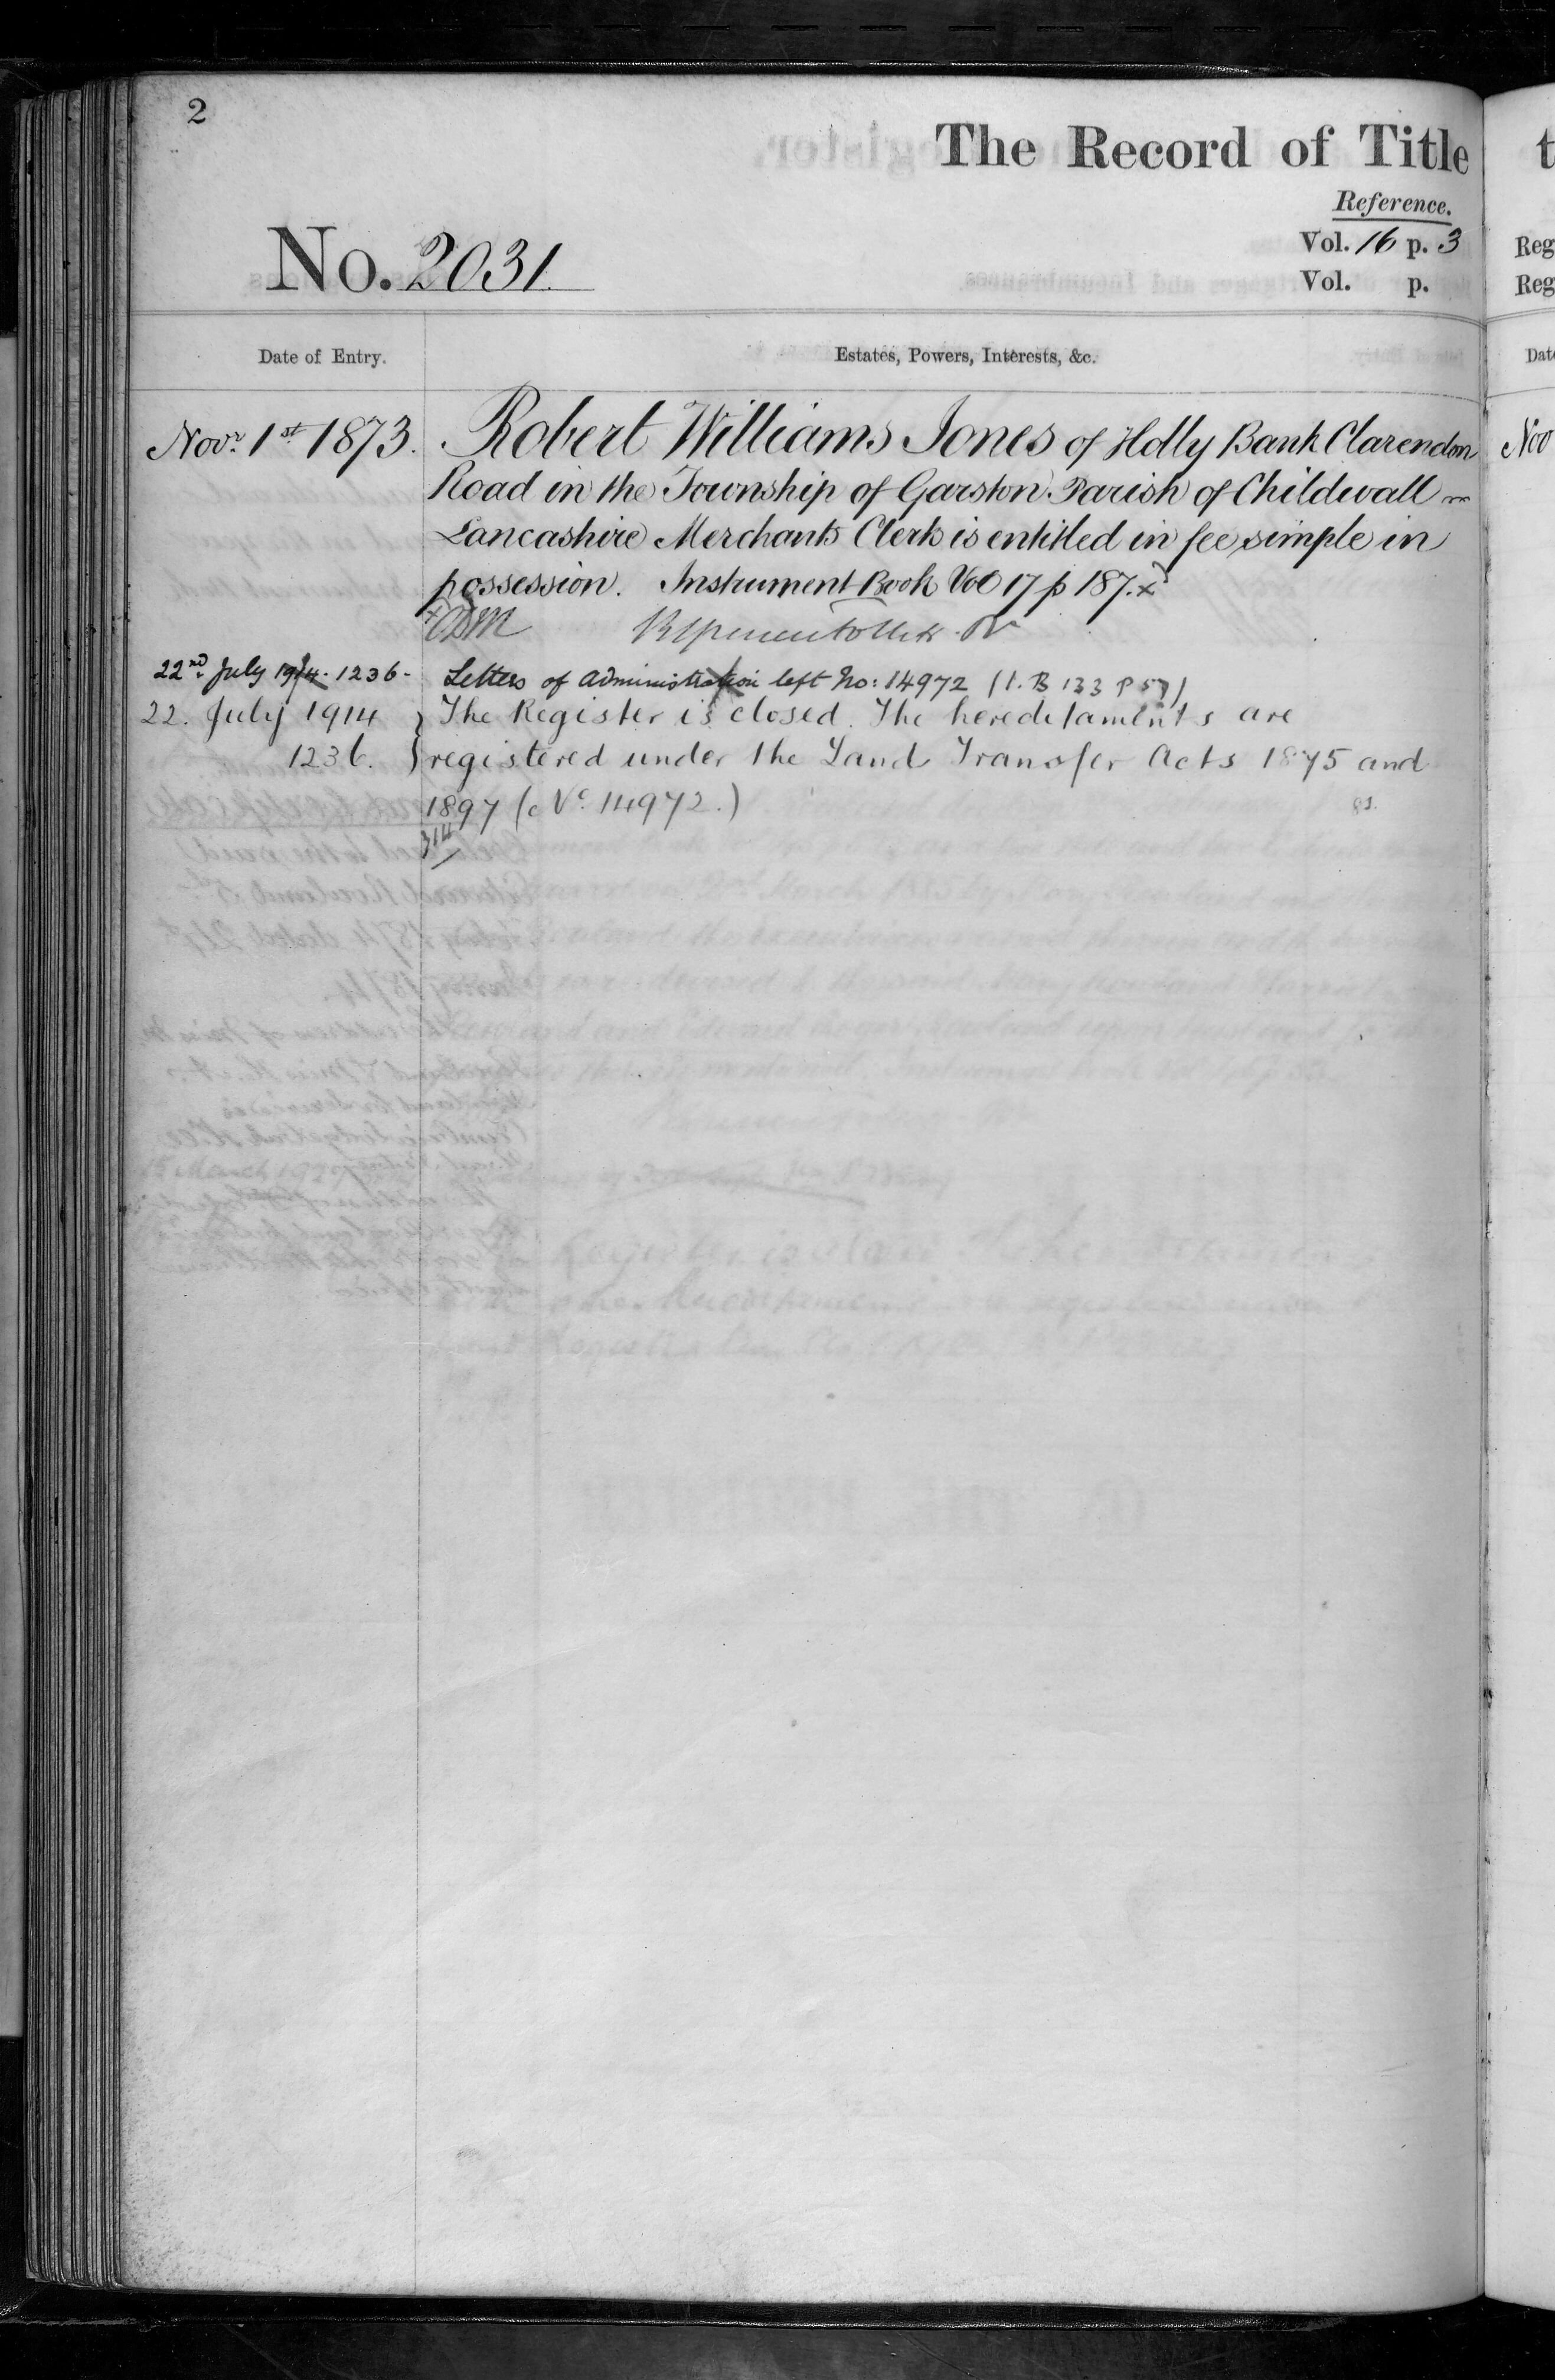 2
The Record of Title
Reference.
No. 2031.
Vol. 16 p. 3
Vol. p.
Date of Entry. Estates, Powers, Interests, &c.
Novr. 1st 1873. Robert Williams Jones of Holly Bank Clarendon
Road in the Township of Garston Parish of Childwall
Lancashire Merchants Clerk is entitled in fee simple in
possession. Instrument Book Vol 17 p 187. x
22nd July 1914. 1236 - Letters of Administration left No: 14972 (I. B 133 P 57)
22. July 1914 } The Register is closed. The hereditaments are
1236. } registered under the Land Transfer Acts 1875 and
1897 (No. 14972.)
314
t
Reg
Reg
Dat
Nov